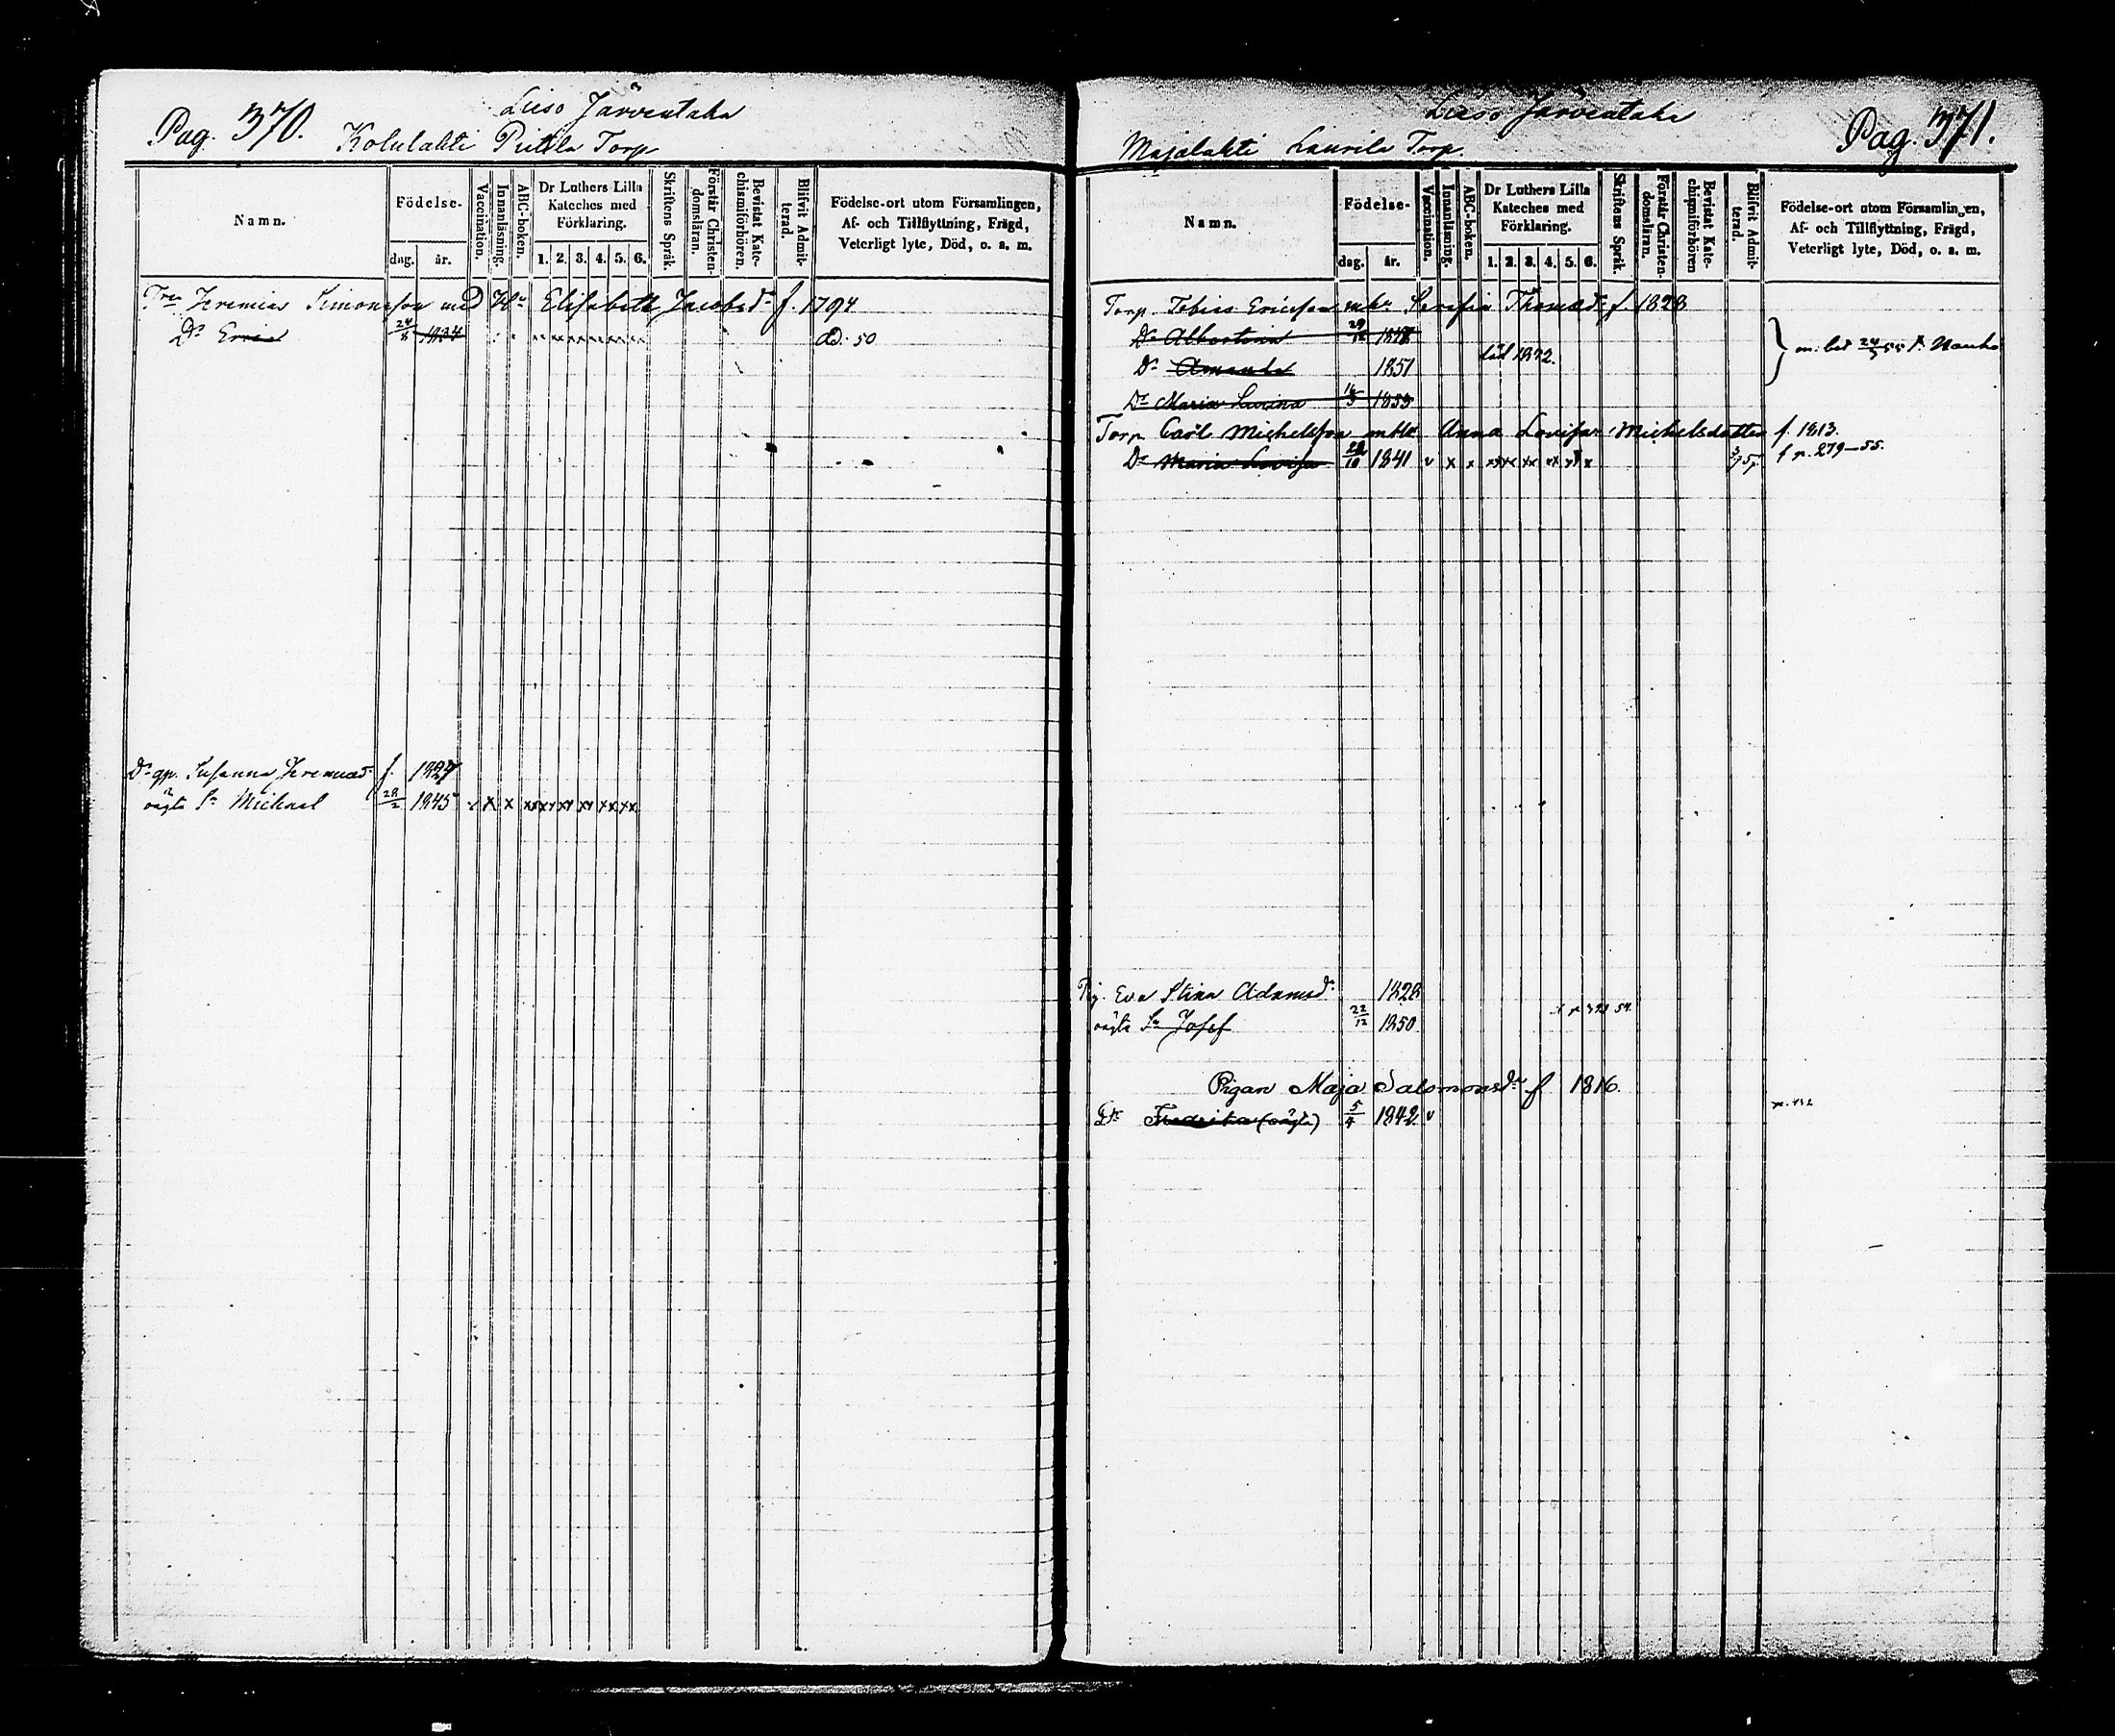 Pag. 370.
Luso Järventaka
Kolulahti Pietila Torp
Namn.
Födelse-
dag. år.
Vaccination.
Innanläsning.
ABC-boken.
Dr Luthers Lilla Kateches med Förklaring.
1. 2. 3. 4. 5. 6.
Skriftens Språk.
Förstår Christendomsläran.
Bevistat Katechismiförhören.
Blifvit Admitterad.
Födelse-ort utom Församlingen,
Af- och Tillflyttning, Frägd,
Veterligt lyte, Död, o. s. m.
Jeremias Simonsson med Hu Elisabeth Jacobsdr f. 1794
Dr 24/8 1834 ad. 50
Dr qp. Susanna Jeremiasd. f. 1827
oägta Sn Michael 28/2 1845 v x x xx xx xx xx xx xx
Luso Järventaka
Pag. 371.
Majalahti Laurila Torp.
Namn.
Födelse-
dag. år.
Vaccination.
Innanläsning.
ABC-boken.
Dr Luthers Lilla
Kateches med
Förklaring.
1. 2. 3. 4. 5. 6.
Skriftens Språk.
Förstår Christendomsläran.
Bevistat Katechismiförhören
Blifvit Admitterad.
Födelse-ort utom Församlingen,
Af- och Tillflyttning, Frägd,
Veterligt lyte, Död, o. s. m.
Torp. Tobias Ericsson mhu Serafia Thomasdr f. 1828
Dr Albertina 29/12 1848
Dr Amanda 1851
Dr Maria 16/3 1853
Torp. Carl Michelsson mhu Anna Lovisa Michelsdotter f. 1813.
Dr Maria Lovisa 28/10 1841 v x x xx xx xx xx f p. 279-55.
Pig. Eva Stina Adamsdr 1828
oägta Sn Josef 22/12 1850.
Pigan Maja Salomonsdr f 1816.
Dr Fredrika (oägta) 5/4 1842 v